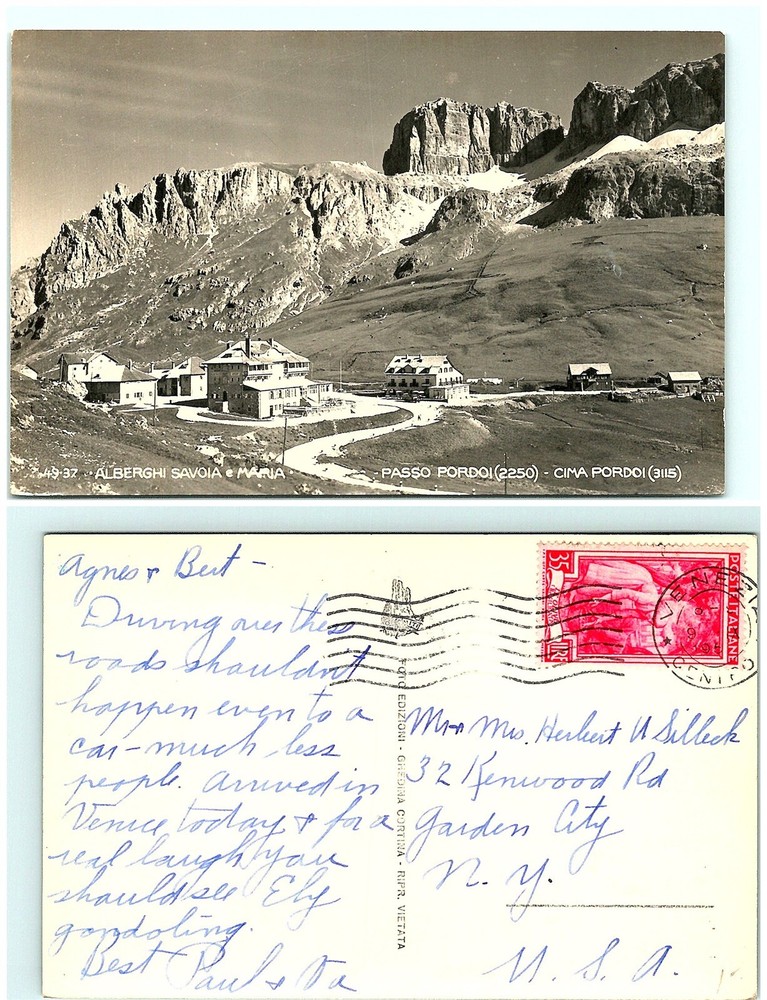 7-49-37 - ALBERGHI SAVOIA e MARIA - PASSO PORDOI (2250) - CIMA PORDOI (3115)
Agnes & Bert -
Driving over these
roads shouldn't
happen even to a
car - much less
people. Arrived in
Venice today & for a
real laugh you
should see Ely
gondoling.
Best Paul &
FOTO EDIZIONI - GHEDINA CORTINA - RIPR. VIETATA
35
LIRE
POSTE ITALIANE
VENEZIA
CENTRO
Mr & Mrs. Herbert U Silleck
32 Kenwood Rd
Garden City
N. Y.
U. S. A.